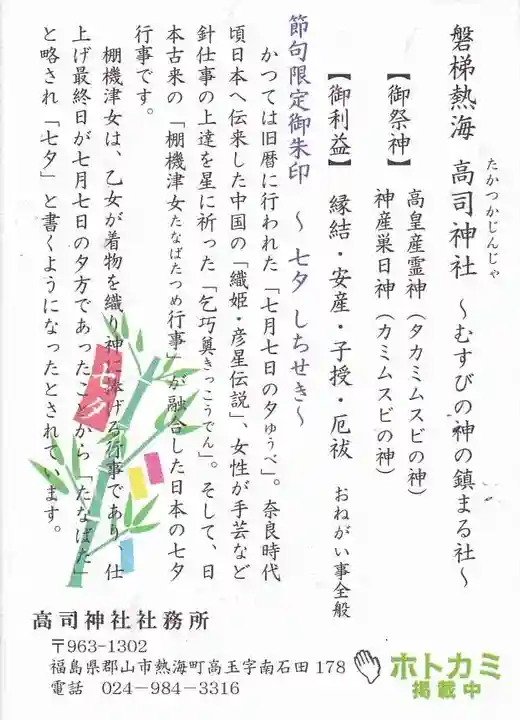 磐梯熱海 高司神社 〜むすびの神の鎮まる社〜
たかつかじんじゃ
【御祭神】 高皇産霊神（タカミムスビの神）
神産巣日神（カミムスビの神）
【御利益】 縁結・安産・子授・厄祓 おねがい事全般
節句限定御朱印 〜七夕 しちせき〜
かつては旧暦に行われた「七月七日の夕ゅうべ」。奈良時代
頃日本へ伝来した中国の「織姫・彦星伝説」、女性が手芸など
針仕事の上達を星に祈った「乞巧奠きっこうでん」。そして、日
本古来の「棚機津女たなばたつめ行事」が融合した日本の七夕
行事です。
棚機津女は、乙女が着物を織り神に捧げる行事であり、仕
上げ最終日が七月七日の夕方であったことから「たなばた」
と略され「七夕」と書くようになったとされています。
七夕
高司神社社務所
〒963-1302
福島県郡山市熱海町高玉字南石田178
電話 024−984−3316
ホトカミ
掲載中